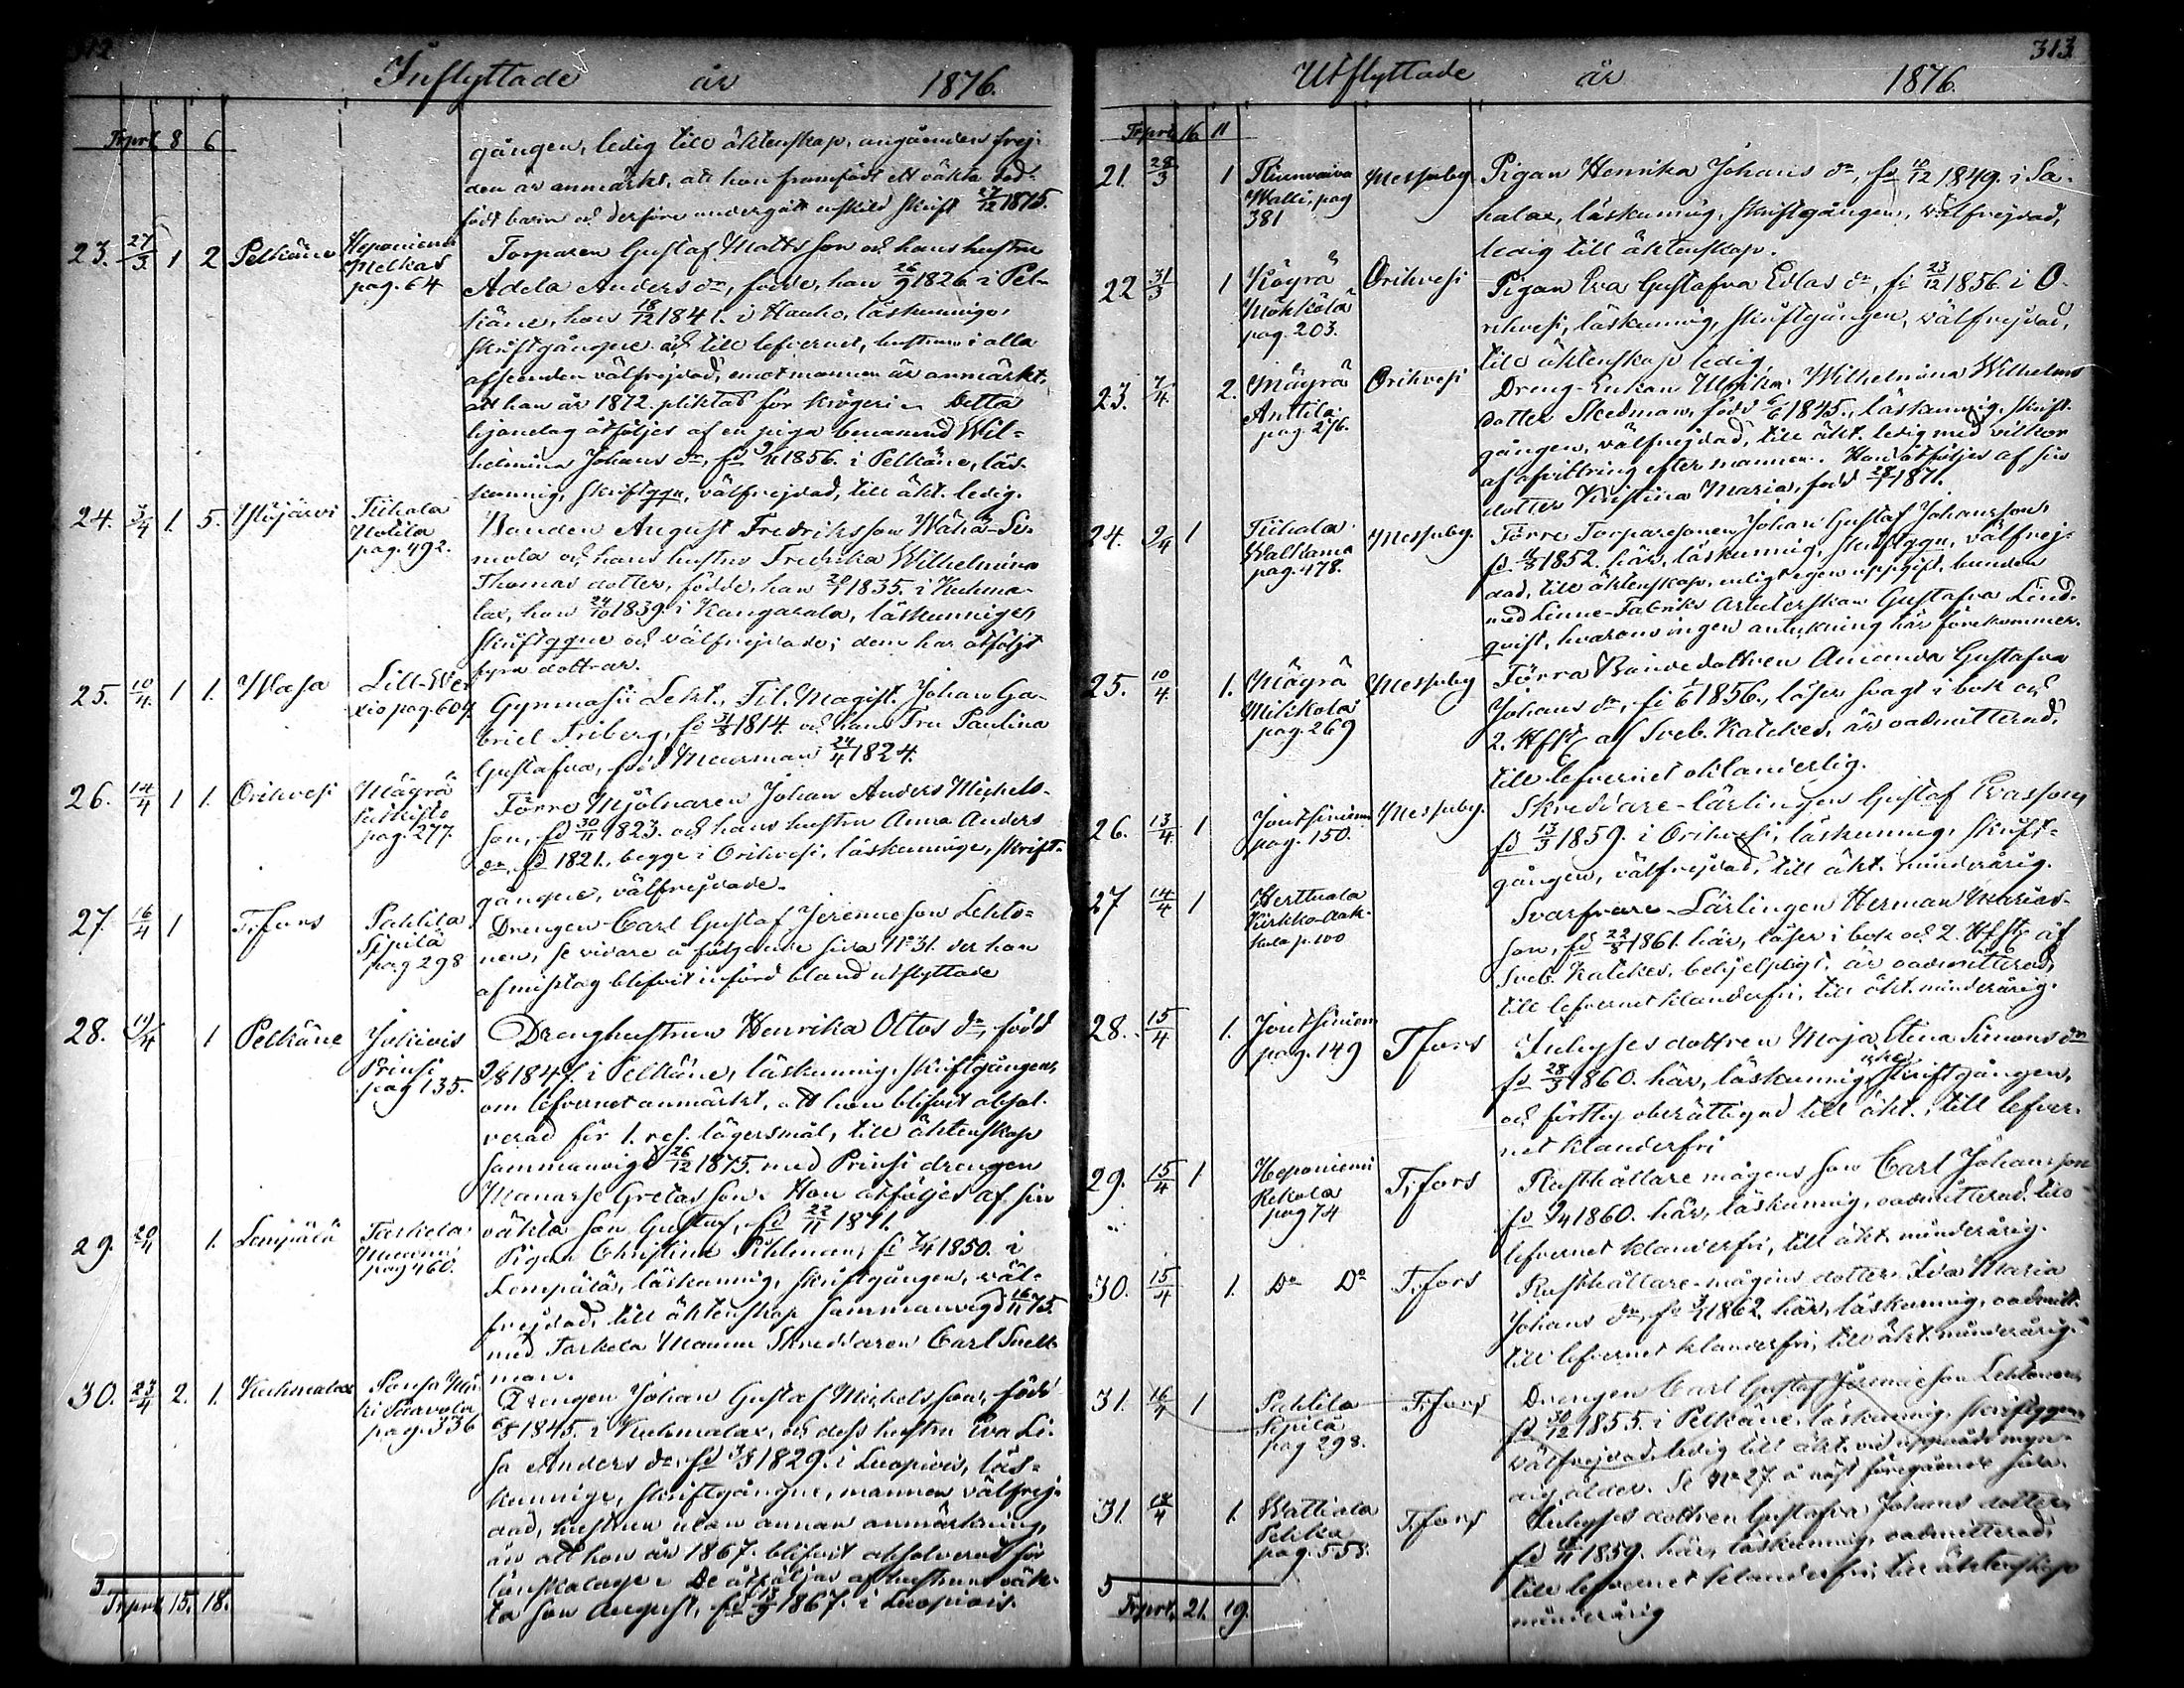 312
Inflyttade år 1876.
Trprt 8 6
gången, ledig till äktenskap, angåenden frej-
den är anmärkt, att hon framfödt ett oäkta död-
födt barn och derföre undergått enskild skrift 27/12 1875.
23. 27/3 1 2 Pelkäne Heponiemi Melkas pag. 64
Torparen Gustaf Matts son och hans hustru
Adela Anders dr, födde, han 26/9 1826 i Pel-
käne, hon 18/12 1841. i Hauho, läskunnige,
skriftgångne och till lefvernet, hustrun i alla
afseenden välfrejdad, emot mannen är anmärkt,
att han år 1872. pliktat för krögeri. Detta
hjonelag åtföljes af en piga benämnd Wil-
helmina Johans dr, fd 1856. i Pelkäne, läs-
kunnig, skriftggn, välfrejdad, till äkt. ledig.
24. 3/4 1. 5. Ylöjärvi Tiihala Uotila pag. 492.
Bonden August Fredriksson Wähä-Si-
mola och hans hustru Fredrika Wilhelmina
Thomas dotter, födde, han 1835. i Kuhma-
lax, hon 24/10 1839. i Kangasala, läskunnige,
skriftggne och välfrejdade; dem har åtföljt
fyra döttrar.
25. 10/4 1 1. Wasa Lill-Wer xio pag. 604.
Gymnasii Lekt., Fil. Magist. Johan Ga-
briel Friberg, fd 31/8 1814. och hans Fru Paulina
Gustafva, född Meurman 24/4 1824.
26. 14/4 1 1. Orihvesi Mägrä pag. 277.
Förre Mjölnaren Johan Anders Michels-
son, fd 30/11 1823. och hans hustru Anna Anders
dr, fd 1821., begge i Orihvesi, läskunnige, skrift-
gångne, välfrejdade.
27. 16/4 1 T:fors Sahlila Sipilä pag 298
Drengen Carl Gustaf Jeremieson Lehto-
nen, se vidare å följande sida No 31. der han
af mistag blifvit införd bland utflyttade
28. 19/4 1 Pelkäne Prinsi pag 135.
Drenghustrun Henrika Ottos dr, född
1847. i Pelkäne, läskunnig, skriftgången,
om lefvernet anmärkt, att hon blifvit absol-
verad för 1. res. lägersmål, till äktenskap
sammanvigd 26/12 1875. med Prinsi drengen
Manasse Gretas son. Hon åtföljes af sin
oäkta son Gustaf, fd 22/11 1871.
29. 20/4 1. Lempälä Taskela pag 460.
Pigan Christina Pihlman, fd 1850. i
Lempälä, läskunnig, skriftgången, väl-
frejdad, till äktenskap sammanvigd 16/11 75.
med Taskela Skreddaren Carl Snell-
man.
30. 23/4 2. 1. Kuhmalax pag. 336
Drengen Johan Gustaf Michelsson, född
1845. i Kuhmalax, och dess hustru Eva Li-
sa Anders dr, fd 1829. i Luopiois, läs-
kunnige, skriftgångne, mannen välfrej-
dad, hustrun utan annan anmärkning,
än att hon år 1867. blifvit absolverad för
lönskaläge. De åtföljas af hustruns oäk-
ta son August, fd 1867. i Luopiois.
5
Trprt 15. 18.
313
Utflyttade år 1876.
Trprt 16 11
21. 28/3 1 Walli, pag 381 Messuby
Pigan Henrika Johans dr, fd 1849. i Sa-
halax, läskunnig, skriftgången, välfrejdad,
ledig till äktenskap.
22 31/3 1 Mägrä pag. 203. Orihvesi
Pigan Eva Gustafva Edlas dr, fd 23/12 1856. i O-
rihvesi, läskunnig, skriftgången, välfrejdad,
till äktenskap ledig.
23. 7/4. 2. Mägrä Anttila pag. 276. Orihvesi
Dreng-Enkan Ulrika Wilhelmina Wilhelms
dotter Stedman, född 6/6 1845., läskunnig, skrift-
gången, välfrejdad, till äkt. ledig med vilkor
af afvittring efter mannen. Hon åtföljes af sin
dotter Kristina Maria, född 1871.
24. 9/4 1 Tiihala Walkama pag. 478. Messuby.
Förre Torparesonen Johan Gustaf Johansson,
fd 1852. här, läskunnig, skriftggn, välfrej-
dad, till äktenskap, enligt egen uppgift, bunden
med Linne-Fabriks Arbeterskan Gustafva Lind-
qvist, hvarom ingen anteckning här förekommer.
25. 10/4. 1. Mägrä Milikola pag. 269 Messuby
Förra Bondedottren Amanda Gustafva
Johans dr, fd 1856., läser svagt i bok och
2. Hfst af Sveb. Katekes, är oadmitterad,
till lefvernet oklanderlig.
26. 13/4. 1 Jontsiniemi pag. 150. Messuby.
Skreddare-lärlingen Gustaf Evasson,
fd 13/3 1859. i Orihvesi, läskunnig, skrift-
gången, välfrejdad, till äkt. minderårig.
27 14/4 1 Herttuala Kirkko-Aak- kula p. 100
Svarfvare-Lärlingen Herman Marias-
son, fd 22/8 1861. här, läser i bok och 2. Hfst af
Sveb. Katekes. behjelpligt, är oadmitterad,
till lefvernet klanderfri, till äkt. minderårig.
28. 15/4 1. Jontsiniemi pag. 149 T.fors
Inhyses dottren Maja Stina Simons dr
fd 28/3 1860. här, läskunnig, icke skriftgången,
och förthy oberättigad till äkt.; till lefver-
net klanderfri
29. 15/4 1 Heponiemi Rekola pag 74 T.fors
Rusthållare mågens son Carl Johansson
fd 1860. här, läskunnig, oadmitterad, till
lefvernet klanderfri, till äkt. minderårig.
30. 15/4 1. Do Do T.fors
Rusthållare-mågens dotter Ida Maria
Johans dr, fd 1862. här, läskunnig, oadmitt.
till lefvernet klanderfri, till äkt. minderårig.
31. 16/4 1 Sahlila Sipilä pag 298. T.fors
Drengen Carl Gustaf Jeremieson Lehtonen,
fd 30/12 1855. i Pelkäne, läskunnig, skriftggn,
välfrejdad, ledig till äkt. vid uppnådd myn-
dig ålder. Se No 27. å näst föregående sida.
31. 18/4 1. Wattiala Pekka pag. 555. T.fors
Inhyses dottren Gustafva Johans dotter,
fd 1859. här, läskunnig, oadmitterad,
till lefvernet klanderfri, till äktenskap
minderårig
5
Trprt. 21. 19.